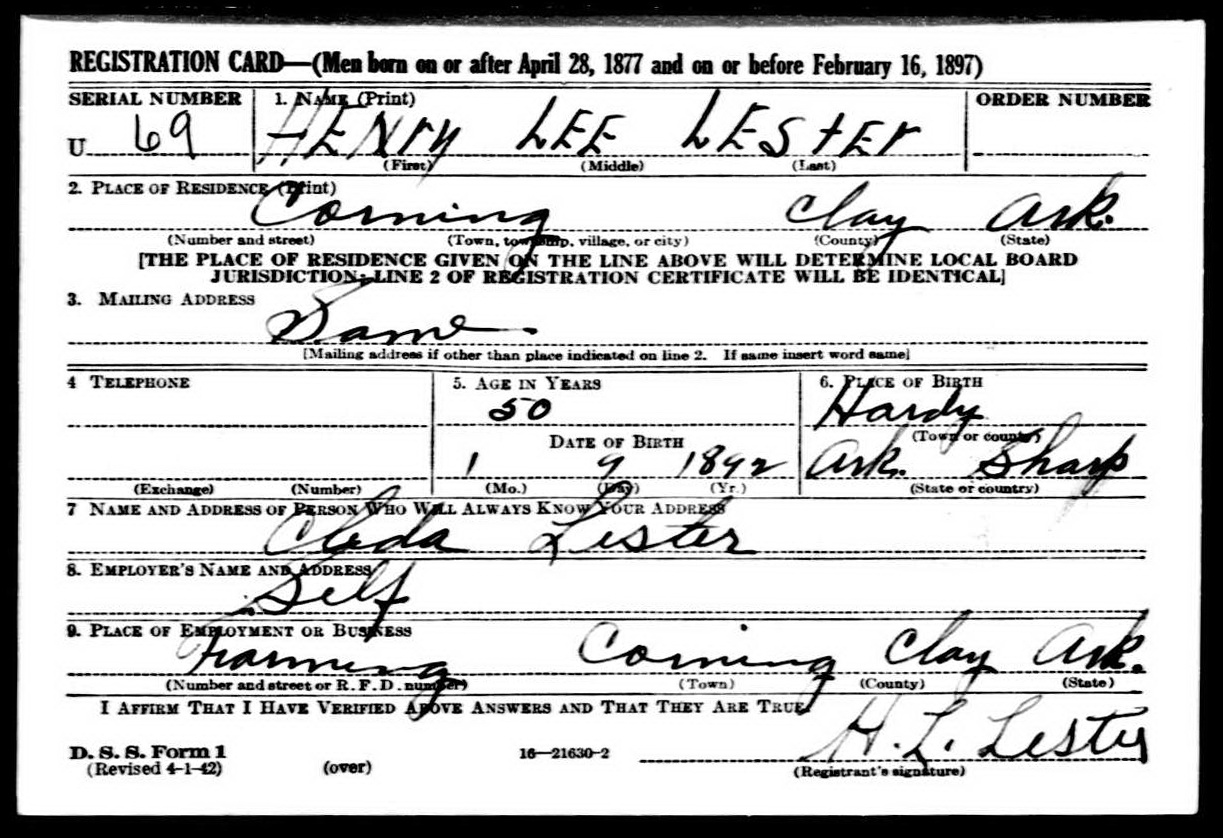 REGISTRATION CARD—(Men born on or after April 28, 1877 and on or before February 16, 1897)
SERIAL NUMBER 1. NAME (Print) ORDER NUMBER
U 69 HENry LEE LEStEr
(First) (Middle) (Last)
2. PLACE OF RESIDENCE (Print)
Corning Clay Ark.
(Number and street) (Town, township, village, or city) (County) (State)
[THE PLACE OF RESIDENCE GIVEN ON THE LINE ABOVE WILL DETERMINE LOCAL BOARD
JURISDICTION; LINE 2 OF REGISTRATION CERTIFICATE WILL BE IDENTICAL]
3. MAILING ADDRESS
Same
[Mailing address if other than place indicated on line 2. If same insert word same]
4 TELEPHONE 5. AGE IN YEARS 6. PLACE OF BIRTH
50 Hardy
DATE OF BIRTH (Town or county)
1 9 1892 Ark. Sharp
(Exchange) (Number) (Mo.) (Day) (Yr.) (State or country)
7 NAME AND ADDRESS OF PERSON WHO WILL ALWAYS KNOW YOUR ADDRESS
Cleda Lester
8. EMPLOYER'S NAME AND ADDRESS
Self
9. PLACE OF EMPLOYMENT OR BUSINESS
Farming Corning Clay Ark.
(Number and street or R. F. D. number) (Town) (County) (State)
I AFFIRM THAT I HAVE VERIFIED ABOVE ANSWERS AND THAT THEY ARE TRUE.
H. L. Lester
D. S. S. Form 1 16—21630-2
(Revised 4-1-42) (over) (Registrant's signature)